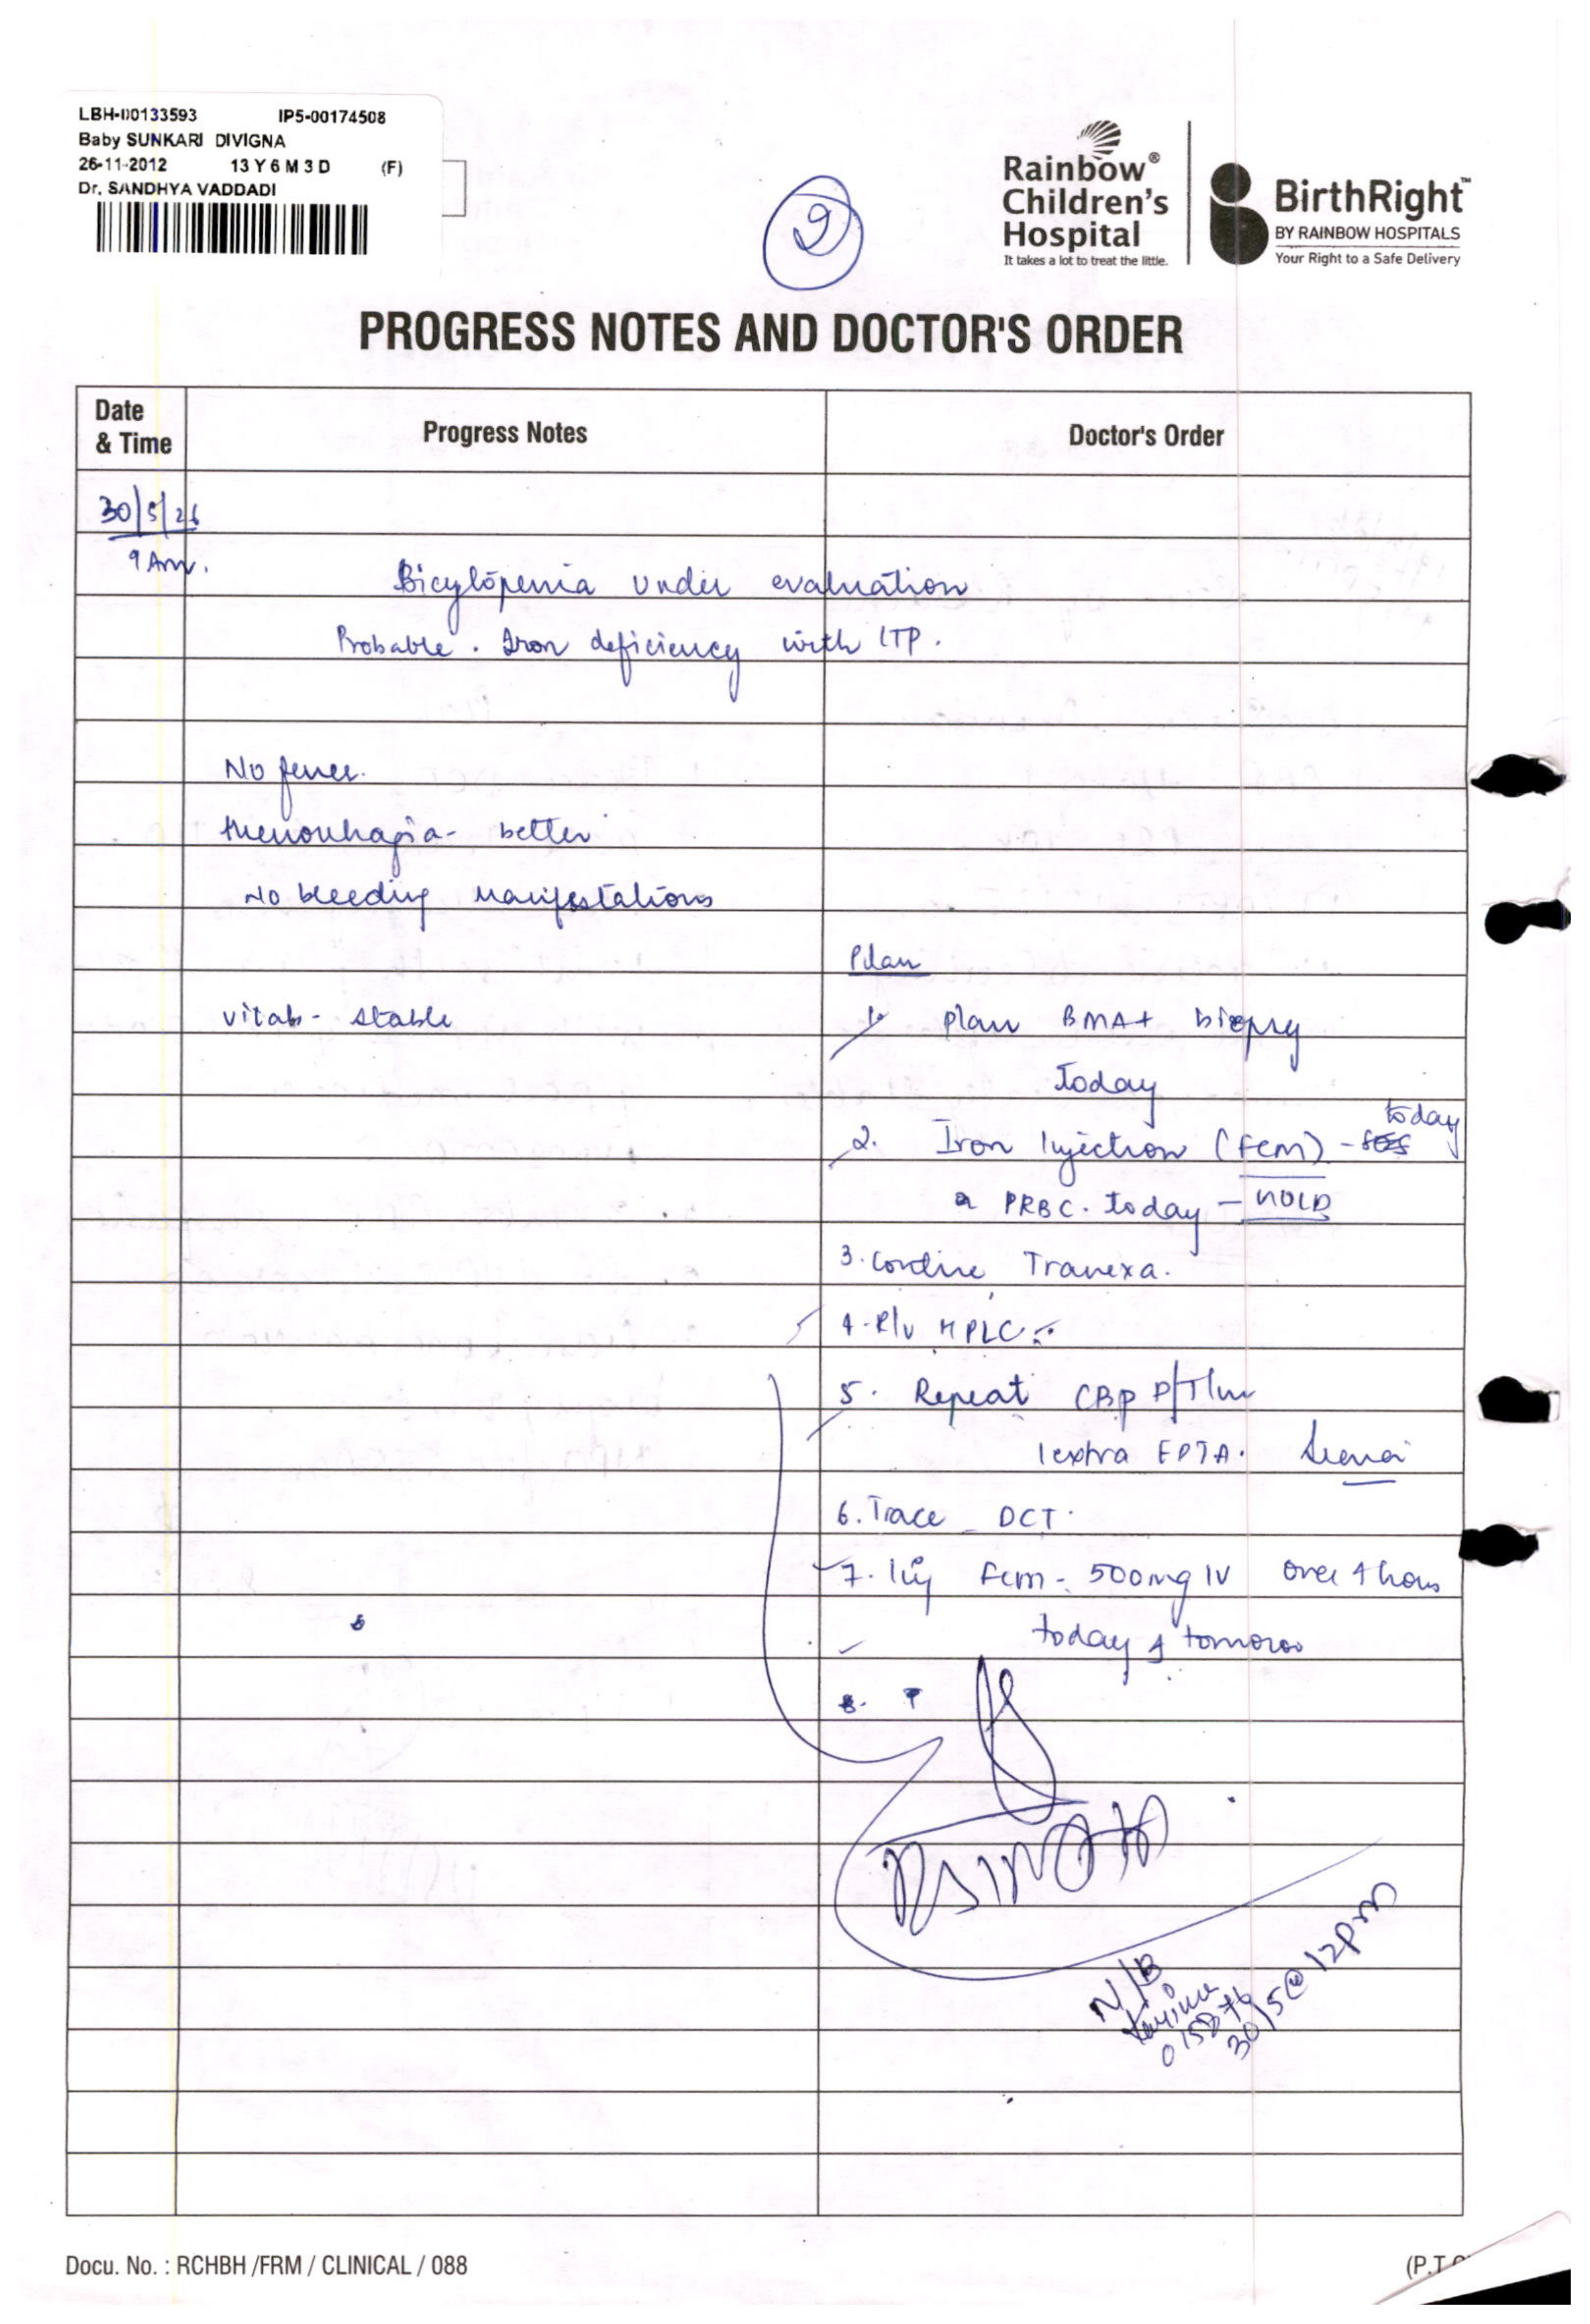 LBH-00133593 IP5-00174508
Baby SUNKARI DIVIGNA
26-11-2012 13 Y 6 M 3 D (F)
Dr. SANDHYA VADDADI
9
Rainbow®
Children's
Hospital
It takes a lot to treat the little.
BirthRight™
BY RAINBOW HOSPITALS
Your Right to a Safe Delivery
PROGRESS NOTES AND DOCTOR'S ORDER
Date & Time Progress Notes Doctor's Order
30/5/26
9 Am.
Bicytopenia under evaluation
Probable. Iron deficiency with ITP.
No fever.
Menorrhagia - better
No bleeding manifestations
Plan
vitals - stable 1. plan BMA + biopsy
Today
today
2. Iron Injection (fcm) -
PRBC. today - HOLD
3. Contine Tranexa.
4. R/v HPLC
5. Repeat CBP
1 extra EDTA.
6. Trace - DCT.
7. Inj fcm - 500mg IV over 4 hours
today & tomoroo
8.
N/B
30/5 @ 12pm
Docu. No. : RCHBH /FRM / CLINICAL / 088